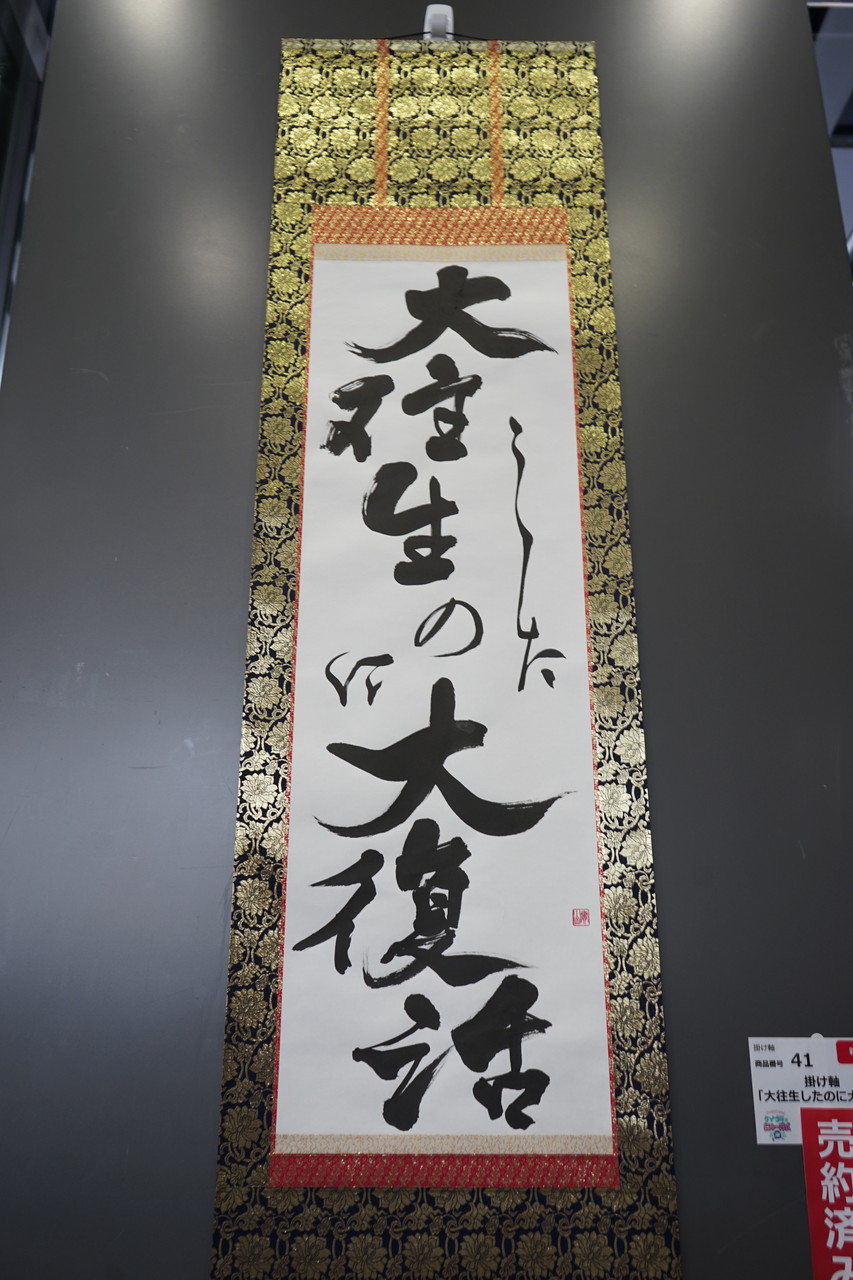 大往生
したのに
大復活
掛け軸
商品番号 41
掛け軸
「大往生したのに大
売約済み